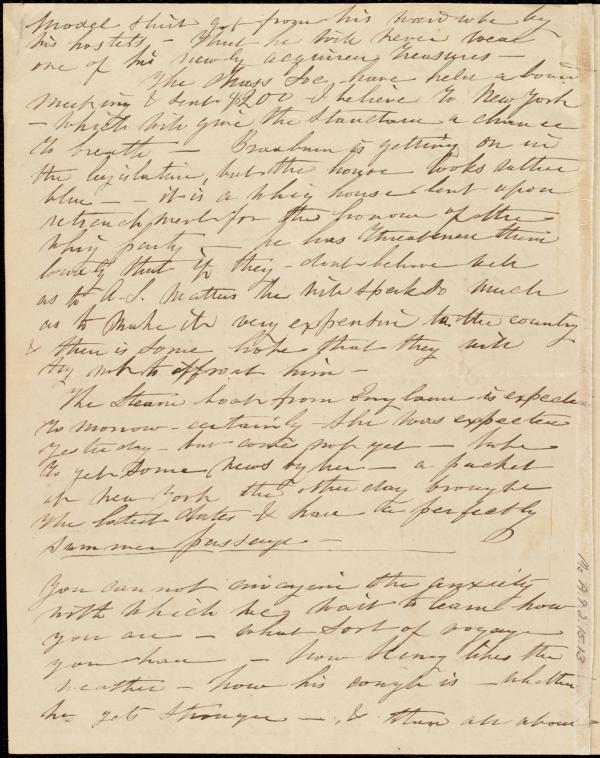 Model shirt got from his wardrobe by
his hostess - That he will never wear
one of his newly acquired treasures -
The Mass Soc. have held a board
meeting & sent $200 I believe to New York
- which will give the Standard a chance
to breathe - Bradburn is getting on in
the legislature, but the house looks rather
blue - - it is a whig house bent upon
retrenchment for the honour of the
whig party - he has threatened them
that if they don't behave well
as to A.S. matters he will speak so much
as to make it very expensive to the country
& there is some hope that they will
try not to affront him -
The Steam boat from England is expected
tomorrow - certainly - she was expected
yesterday - but come not yet - hope
to get some news by her - a packet
at New York the other day brought
the latest dates & had a perfectly
summer passage -
You can not imagine the anxiety
with which we wait to learn how
you are - what sort of voyage
you have - how Henry likes the
weather - how his cough is - whether
he gets stronger - & then all about
Ms. A. 9.2.15.13